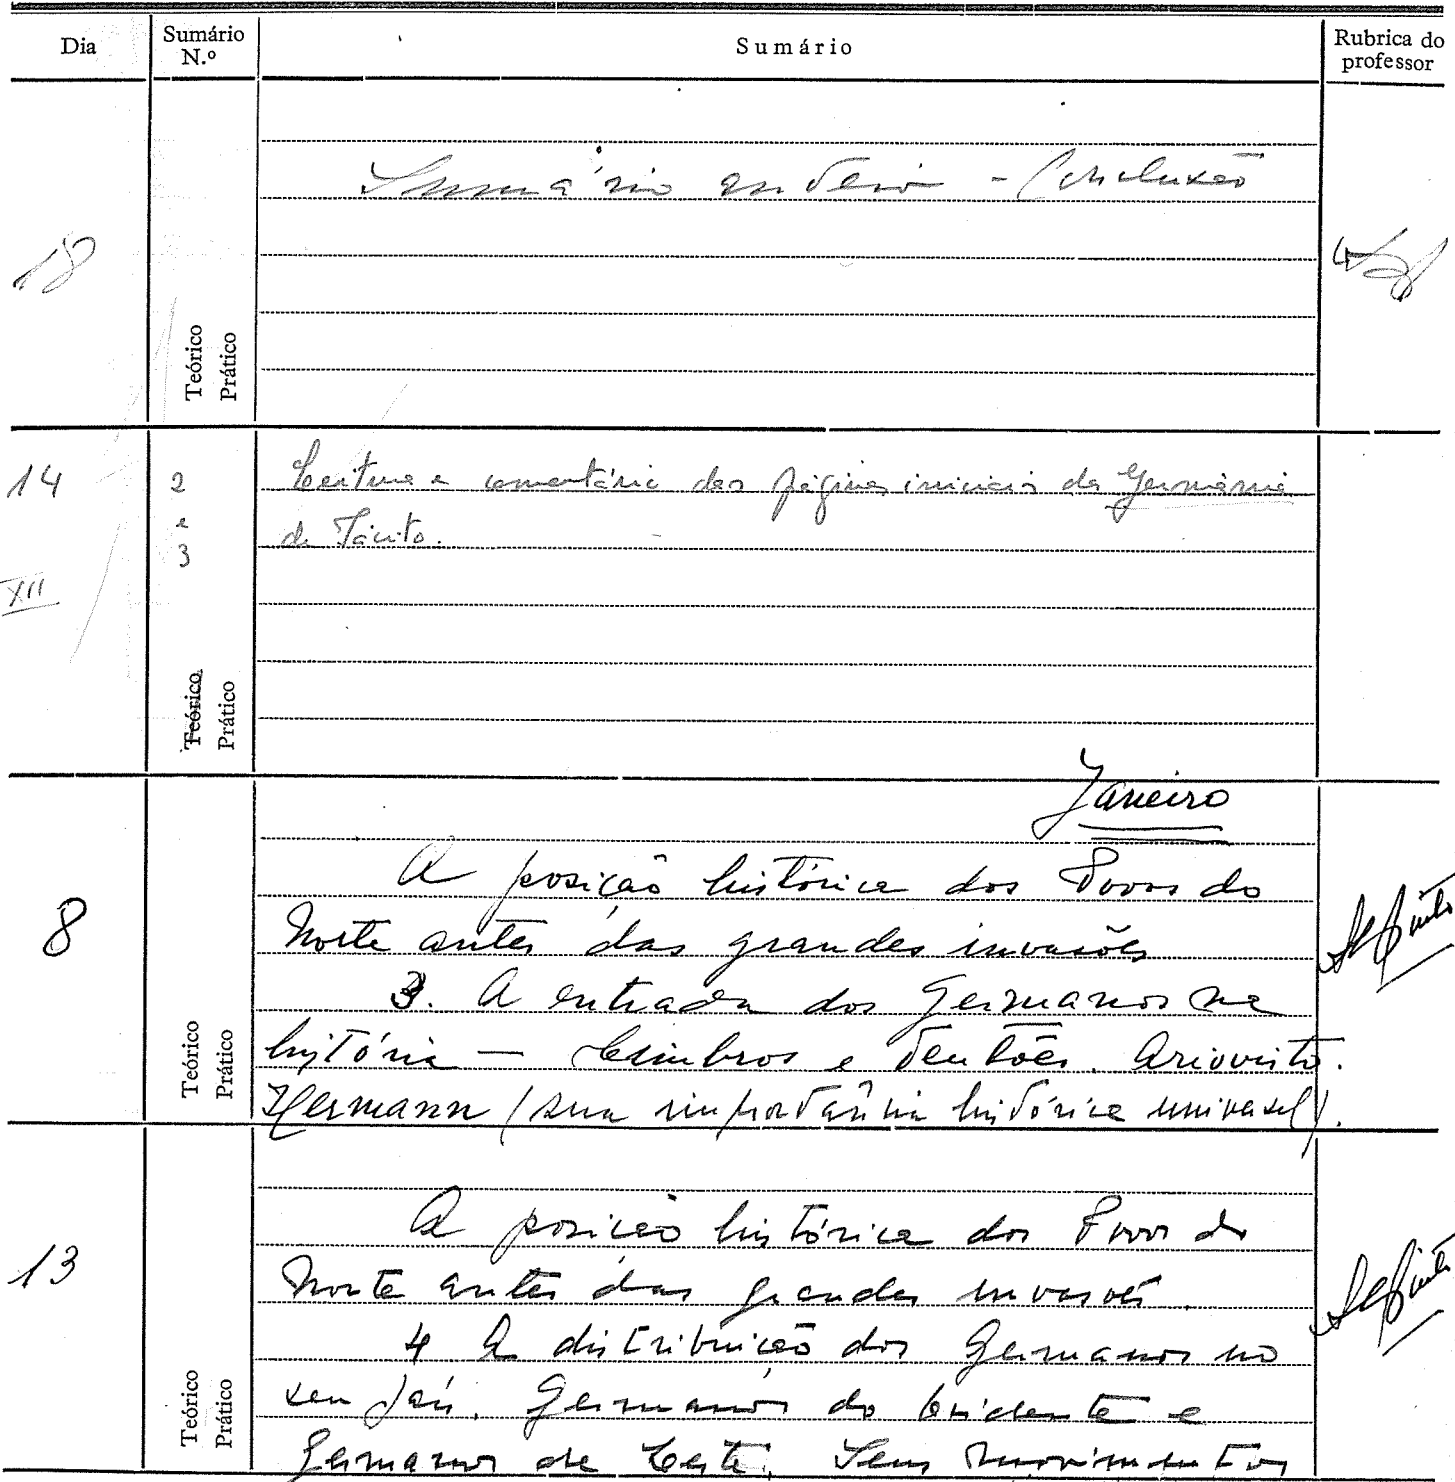 Dia
Sumário N.º
Sumário
Rubrica do professor
18
Sumário anterior - Conclusão
Teórico
Prático
14
XII
2
e
3
Leitura e comentário das páginas iniciais da Germânia
de Tácito.
Teórico
Prático
Janeiro
8
A posição histórica dos Povos do
Norte antes das grandes invasões
3. A entrada dos Germanos na
história — Cimbros e Teutões. Ariovisto.
Hermann (sua importância histórica universal).
Teórico
Prático
13
A posição histórica dos Povos do
Norte antes das grandes invasões.
4 A distribuição dos Germanos no
seu país. Germanos do Ocidente e
Germanos de Leste. Seus movimentos
Teórico
Prático